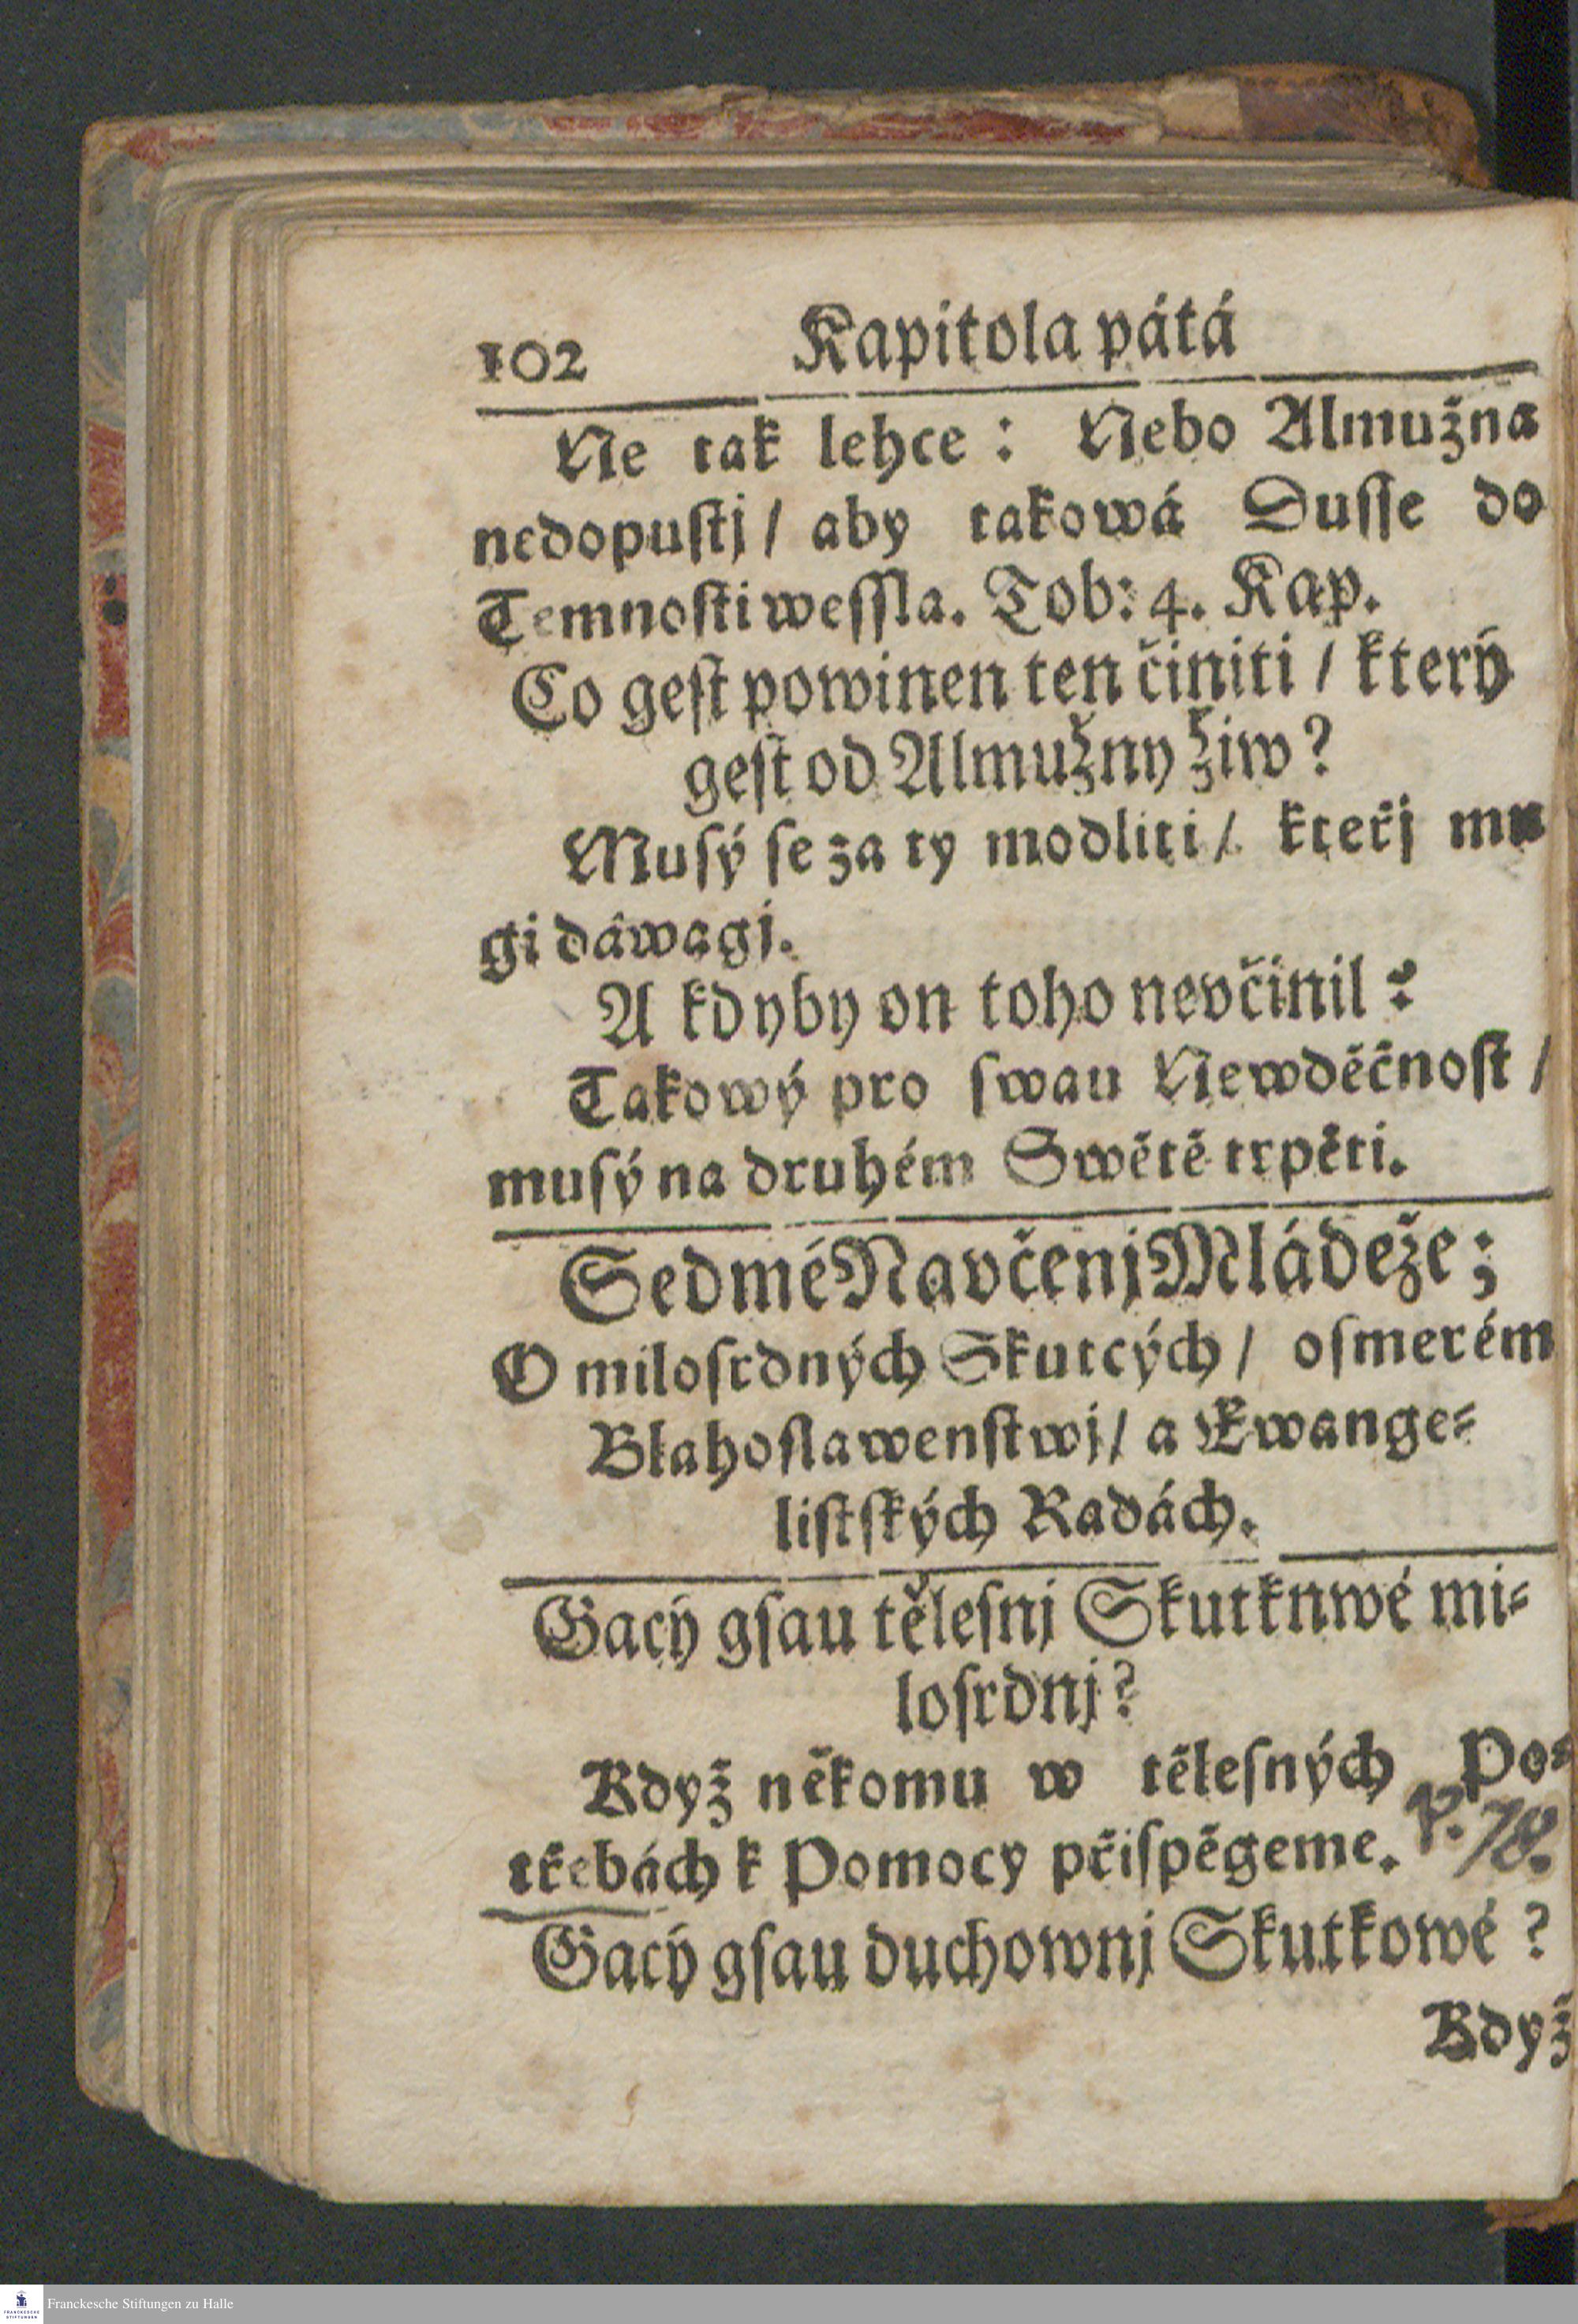 102 Kapitola pátá
Ne tak lehce: Nebo Almužna
nedopustj / aby takowá Dusse do
Temnosti wessla. Tob: 4. Kap.
Co gest powinen ten činiti / který
gest od Almužny žiw?
Musý se za ty modliti / kteřj mu
gi dáwagj.
A kdyby on toho nevčinil?
Takowý pro swau Newděčnost /
musý na druhém Swětě trpěti.
Sedmé Navčenj Mládeže;
O milosrdných Skutcých / osmerém
Blahoslawenstwj / a Ewange=
listských Radách.
Gacý gsau tělesnj Skutknwé mi=
losrdnj?
Když někomu w tělesných Po=
třebách k Pomocy přispěgeme. p. 78.
Gacý gsau duchownj Skutkowé?
Když
Franckesche Stiftungen zu Halle
FRANCKESCHE
STIFTUNGEN